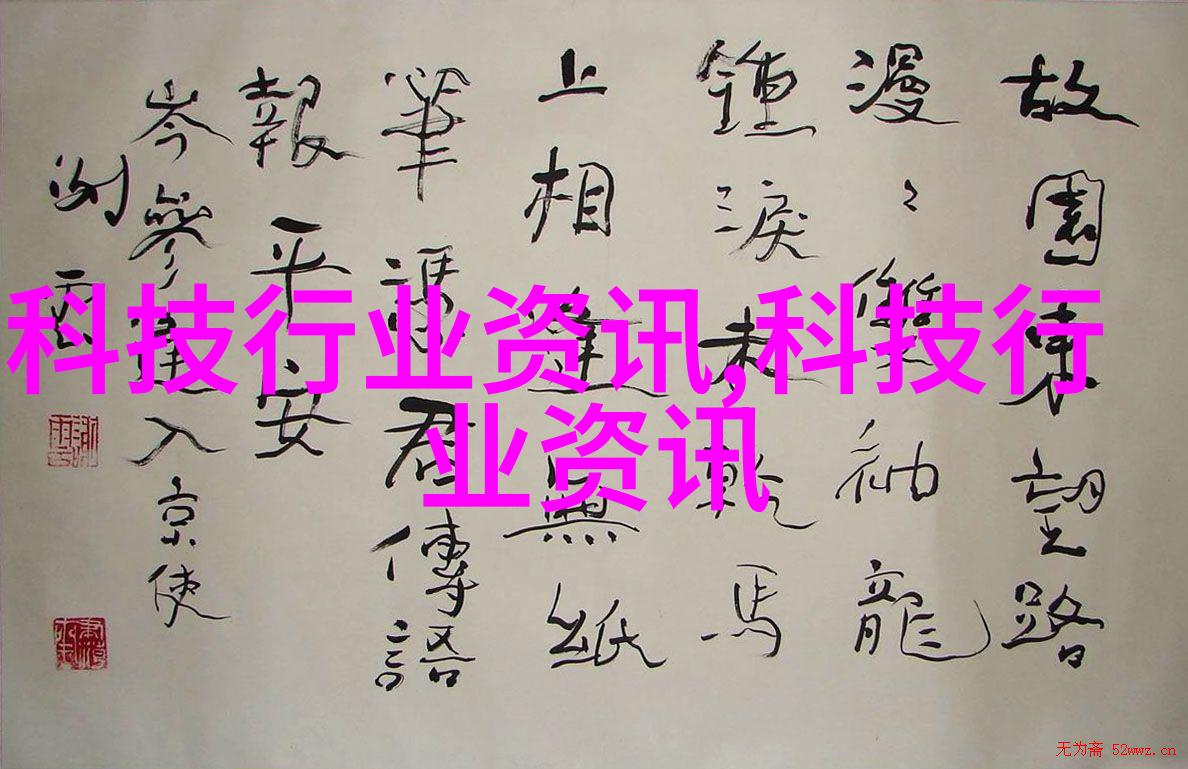 故園東望路
漫〻雙袖龍
鍾淚未乾馬
上相逢無紙
筆憑君傳語
報平安
岑參逢入京使
科技行业资讯,科技行
业资讯
无为斋 52wwz.cn